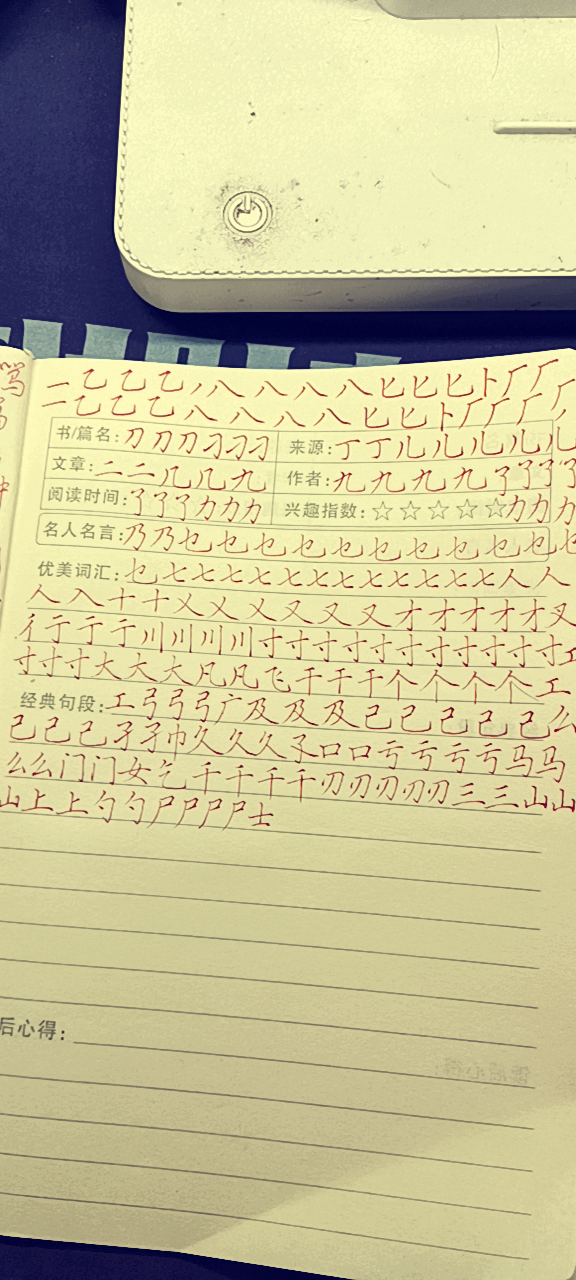 一乙乙乙八八八八匕匕匕卜厂厂
二乙乙乙八八八八匕匕卜厂厂厂厂
书/篇名:刀刀刀刁刁刁 来源:丁丁儿儿儿儿儿
文章:二二几几九 作者:九九九九了了了
阅读时间:了了了力力力 兴趣指数:☆☆☆☆☆力力力
名人名言:乃乃也也也也也也也也也也也
优美词汇:也七七七七七七七七七七七七人人
人入十十乂乂乂又又又才才才才才叉
彳亍亍亍川川川川寸寸寸寸寸寸寸寸寸寸寸工
寸寸寸大大大凡凡飞干干干个个个个工
经典句段:工弓弓弓广及及及己己己己己么
己己己孑孑巾久久久孓口口亏亏亏亏马马
么么门门女乞千千千千刃刃刃刃刃三三山山
山上上勺勺尸尸尸尸士
后心得: